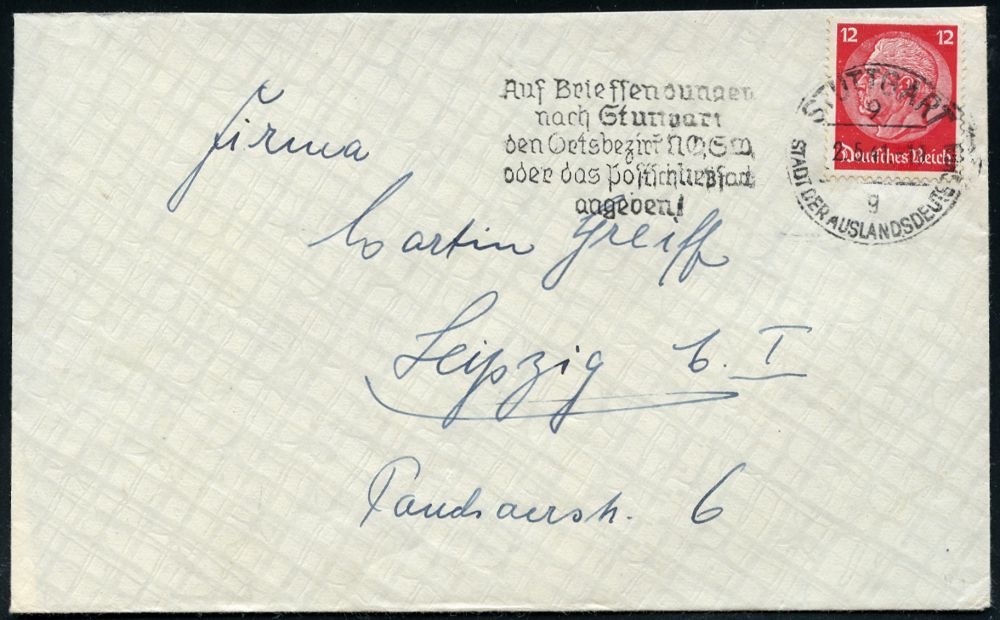 12 12
Deutsches Reich
STUTTGART
9
STADT DER AUSLANDSDEUTSCHEN
g
Auf Briefsendungen
nach Stuttgart
den Ortsbezirk N,O,S,W
oder das Postschließfach
angeben!
Firma
Martin Greiff
Leipzig C. I
6